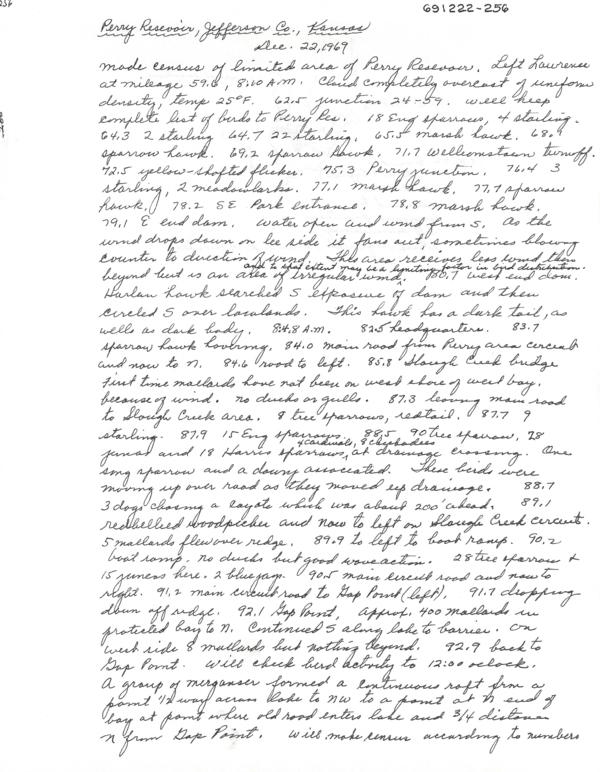 691222-256
Perry Resevoir, Jefferson Co., Kansas
Dec. 22, 1969
made census of limited area of Perry Resevoir. Left Lawrence
at mileage 59.6, 8:10 A.M. Cloud completely overcast of uniform
density, temp 25°F. 62.5 junction 24-59. will keep
complete list of birds to Perry Res. 18 Eng sparrows, 4 starling.
64.3 2 starling 64.7 22 starling. 65.5 marsh hawk. 68.
sparrow hawk. 69.2 sparrow hawk. 71.7 Williamstown turnoff.
72.5 yellow-shafted flicker. 75.3 Perry junction. 76.4 3
starling, 2 meadowlarks. 77.1 marsh hawk. 77.7 sparrow
hawk. 78.2 SE Park entrance. 78.8 marsh hawk.
79.1 E end dam. water open and wind from S. As the
wind drops down on lee side it fans out, sometimes blowing
counter to direction of wind. This area receives less wind than
and to some extent may be a limiting factor in bird distribution.
beyond but is an area of irregular wind. 80.7 west end dam.
Harlan hawk searched S exposure of dam and then
circled S over lowlands. This hawk has a dark tail, as
wells as dark body. 8:48 A.M. 82.5 headquarters. 83.7
sparrow hawk hovering. 84.0 main road from Perry area circuit
and now to N. 84.6 road to left. 85.8 Slough Creek bridge
First time mallards have not been on west shore of west bay.
because of wind. no ducks or gulls. 87.3 leaving main road
to Slough Creek area. 8 tree sparrows, redtail. 87.7 9
starling. 87.9 15 Eng sparrows. 88.5 90 tree sparrow, 28
4 cardinals, 8 chickadees
juncos and 18 Harris sparrows, at drainage crossing. One
song sparrow and a downy associated. These birds were
moving up over road as they moved up drainage. 88.7
3 dogs chasing a coyote which was about 200' ahead. 89.1
redbellied woodpecker and now to left on Slough Creek circuit.
5 mallards flew over ridge. 89.9 to left to boat ramp. 90.2
boat ramp. no ducks but good wave action. 28 tree sparrow &
15 juncos here. 2 bluejay. 90.5 main circuit road and now to
right. 91.2 main circuit road to Gap Point (left). 91.7 dropping
down off ridge. 92.1 Gap Point, approx. 400 mallards in
protected bay to N. Continued S along lake to barrier. On
west side 8 mallards but nothing beyond. 92.9 back to
Gap Point. Will check bird activity to 12:00 oclock.
A group of merganser formed a continuous raft from a
point 1/2 way across lake to NW to a point at N end of
bay at point where old road enters lake and 3/4 distance
N from Gap Point. Will make census according to numbers